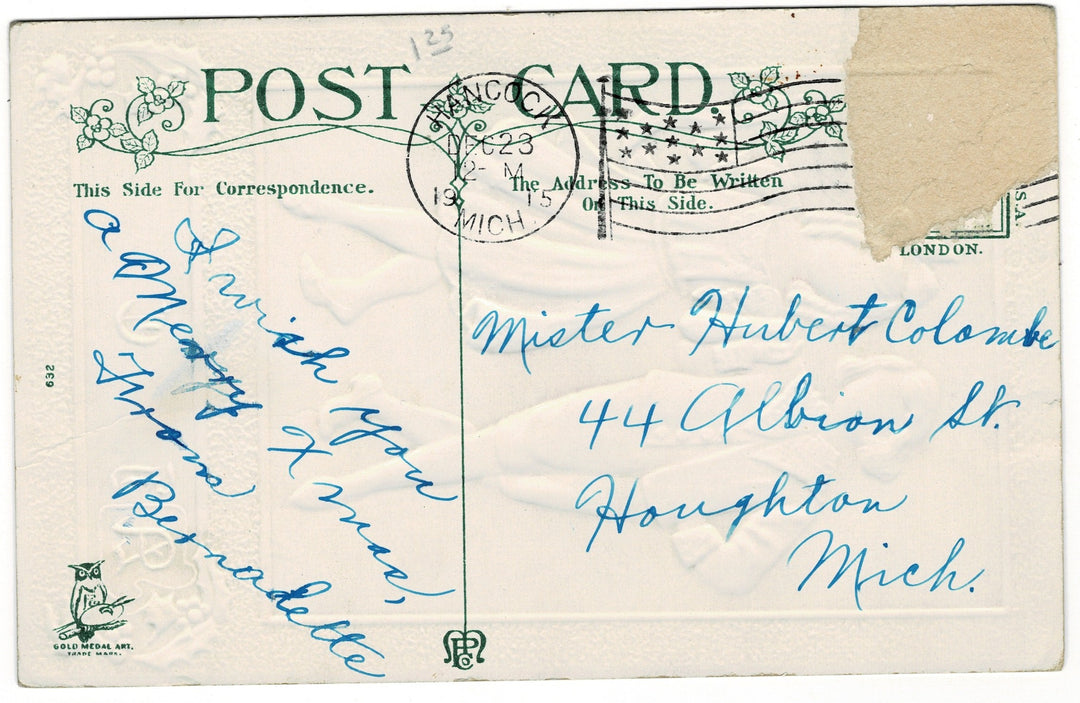 125
POST CARD.
HANCOCK
DEC 23
2- M
1915
MICH.
This Side For Correspondence.
The Address To Be Written
On This Side.
S.A.
LONDON.
I wish you
a Merry X mas,
From
Bernadette
Mister Hubert Colombe
44 Albion St.
Houghton
Mich.
632
GOLD MEDAL ART.
TRADE MARK.